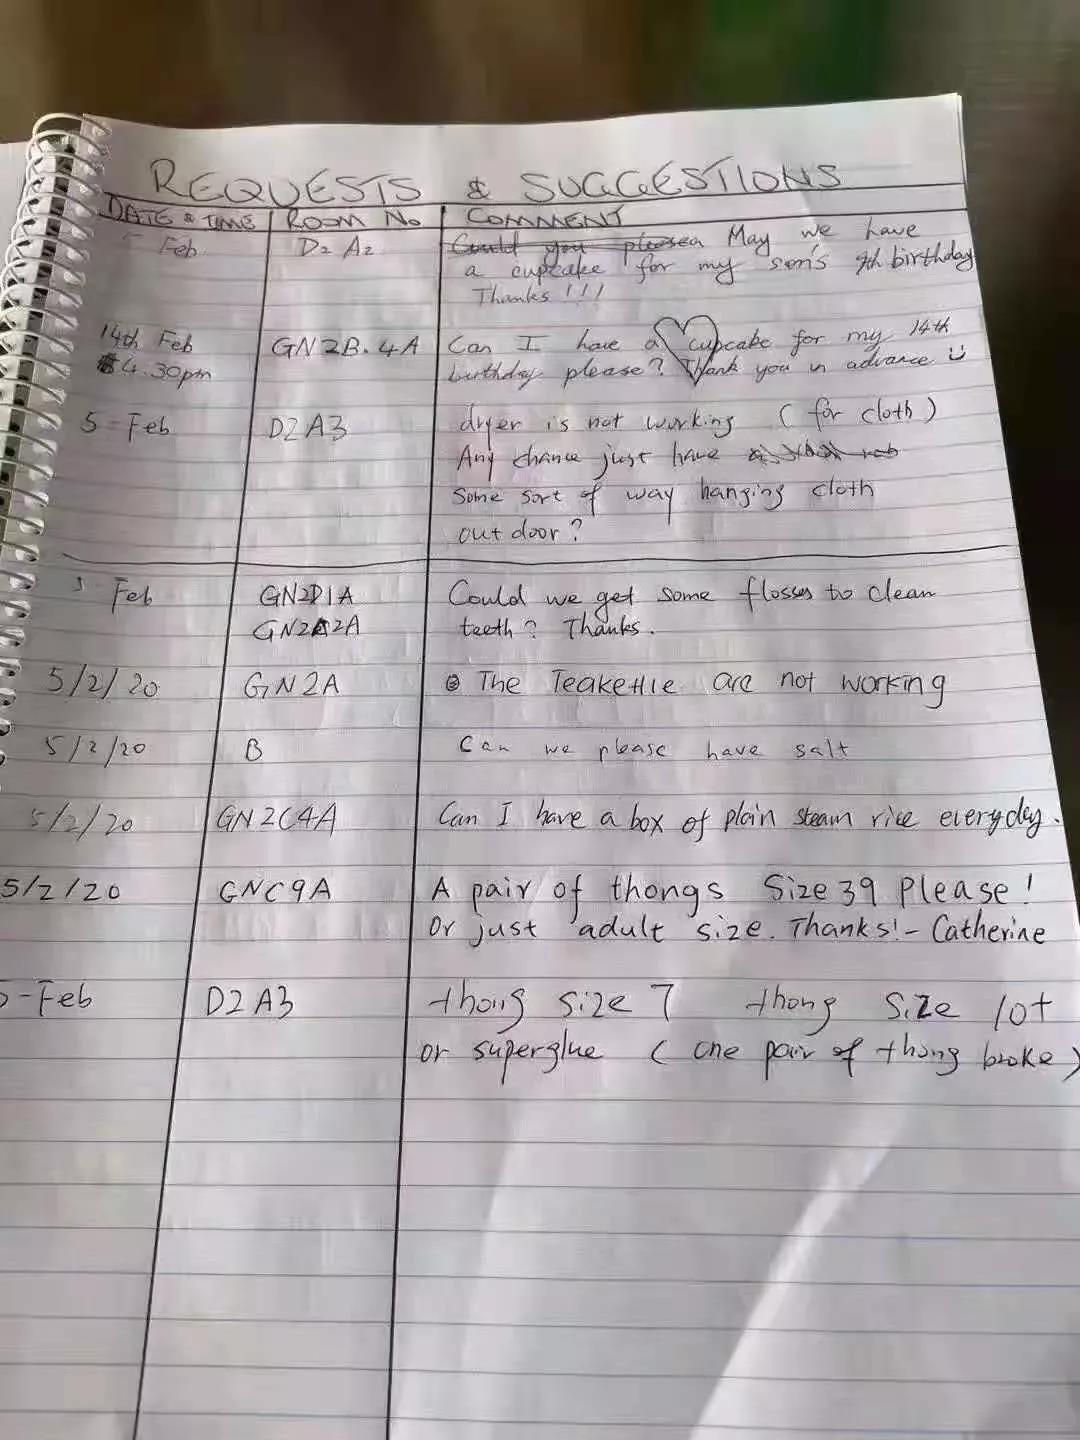 REQUESTS & SUGGESTIONS
DATE & TIME ROOM No COMMENT
Feb D2 A2 Could you please May we have
a cupcake for my son's 9th birthday
Thanks!!!
14th Feb GN2B.4A Can I have a cupcake for my 14th
4.30pm birthday please? Thank you in advance
5-Feb D2A3 dryer is not working (for cloth)
Any chance just have
Some sort of way hanging cloth
out door?
5 Feb GN2D1A Could we get some flosses to clean
GN2A2A teeth? Thanks.
5/2/20 GN2A The Teakettle are not working
5/2/20 B Can we please have salt
5/2/20 GN2C4A Can I have a box of plain steam rice everyday.
5/2/20 GNC9A A pair of thongs Size 39 Please!
Or just adult size. Thanks! - Catherine
5-Feb D2A3 thong size 7 thong size 10+
or superglue (one pair of thong broke)